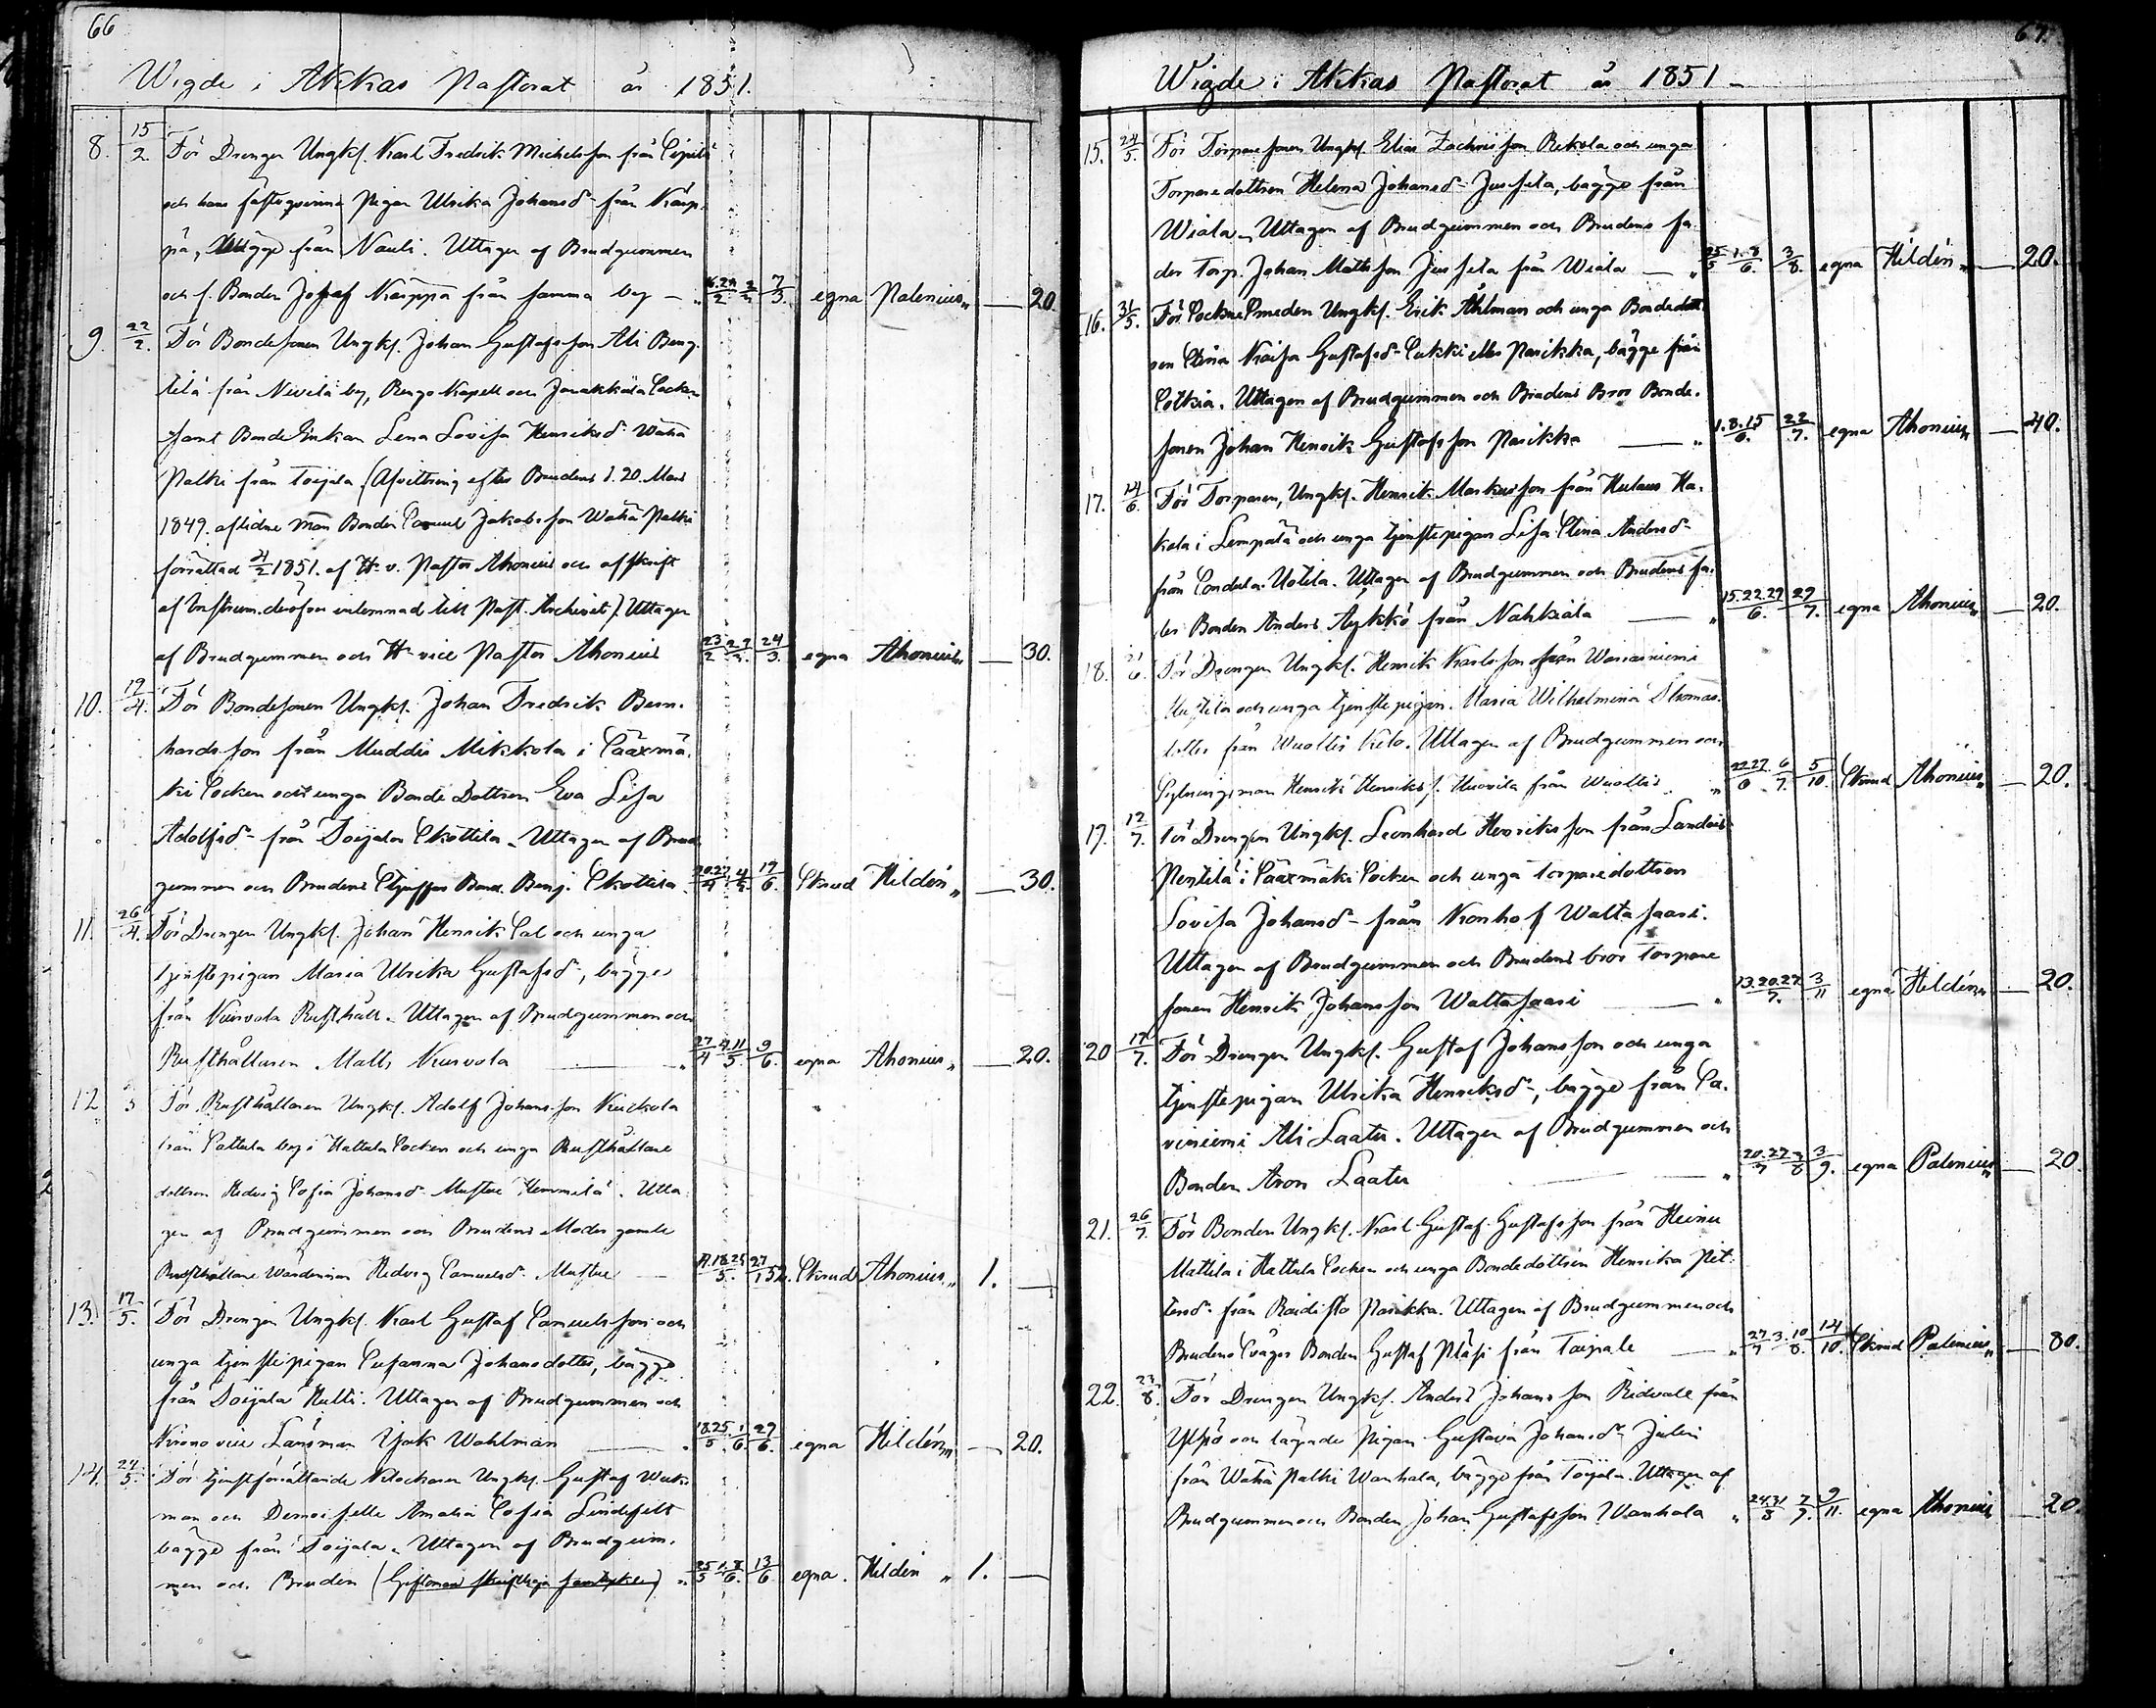 66
Wigde i Akkas Pastorat år 1851.
8. 15/2. För Drengen Ungkl. Karl Fredrik Michelsson från
och hans fästeqvinna Pigan Ulrika Johansd. från Kärp-
pä, bägge från Nauli. Uttagen af Brudgummen
och f. Bonden Josef Kärppä från samma by — 16.24/2 2/3 7/3. egna Palenius „ — 20.
9. 22/2. För Bondesonen Ungkl. Johan Gustafsson Ali Beng-
tilä från Nevilä by, Rengo Kapell och Janakkala Socken
samt Bonde Enkan Lena Lovisa Henriksd. Wähä
Palki från Toijala (Afvittring efter Brudens d. 20. Mars
1849. aflidne man Bonden Samuel Jakobsson Wähä Palki
förrättad 4/2 1851. af Hr v. Pastor Ahonius och afskrift
af Instrum. deröfver inlemnad till Past. Archivet). Uttagen
af Brudgummen och Hr vice Pastor Ahonius 23/2 24/3. egna Ahonius „ — 30.
10. 19/4. För Bondesonen Ungkl. Johan Fredrik Bern-
hardsson från Muddis Mikkola i Sääxmä-
ki Socken och unga Bonde Dottren Eva Lisa
Adolfsd. från Toijala Skottila. Uttagen af Brud-
gummen och Brudens Stjuffar Bond. Benj. Skottila. 20.27/4 4/5 19/6. Skrud Hildén „ — 30.
11. 26/4. För Drengen Ungkl. Johan Henrik Sal och unga
tjenstepigan Maria Ulrika Gustafsd., bägge
från Kurvola Rusthåll. Uttagen af Brudgummen och
Rusthållaren Matts Kurvola — „ 27/4 4.11/5 9/6. egna Ahonius „ — 20.
12 För Rusthållaren Ungkl. Adolf Johansson Kuckola
från Sattula by i Hattula Socken och unga Rusthållare
dottren Hedvig Sofia Johansd. Mustue Hemmilä. Utta-
gen af Brudgummen och Brudens Moder gamle
Rusthållare Wärdinnan Hedvig Samuelsd. Mustue — 18.25/5. 27/ 52. Skrud Ahonius „ 1. —
13. 17/5. För Drengen Ungkl. Karl Gustaf Samuelsson och
unga tjenstepigan Susanna Johansdotter, bägge
från Toijala Hutti. Uttagen af Brudgummen och
Krono vice Länsman Isak Wahlman — „ 18.25/5. 1/6 27/6. egna Hildén „ — 20.
14. 24/5. För tjenstförrättande Klockaren Ungkl. Gustaf Weck-
man och Demoiselle Amalia Sofia Lindefelt
bägge från Toijala. Uttagen af Brudgum-
men och Bruden „ 25/5 1.8/6. 13/6 egna. Hildén „ 1. —
67.
Wigde i Akkas Pastorat år 1851 –
15. 24/5. För Torparesonen Ungkl. Elias Zachrisson Rekola och unga
Torparedottren Helena Johansd. Jussila, bägge från
Wiala. Uttagen af Brudgummen och Brudens fa-
der Torp. Johan Mattsson Jussila från Wiala — „ 25/5 1.8/6. 3/8. egna Hildén „ — 20.
16. 31/5. För Sockne Smeden Ungkl. Erik Åhlman och unga Bondedott-
ren Stina Kaisa Gustafsd. Sukki eller Parikka, bägge från
Sotkia. Uttagen af Brudgummen och Brudens Bror Bonde-
sonen Johan Henrik Gustafsson Parikka — „ 1.8.15/6. 22/7. egna Ahonius „ — 40.
17. 14/6. För Torparen, Ungkl. Henrik Markusson från Hulaus Ha-
kola i Lempälä och unga tjenstepigan Lisa Stina Andersd.
från Sondula Uotila. Uttagen af Brudgummen och Brudens fa-
der Bonden Anders Äykkö från Nahkiala — „ 15.22.29/6. 29/7. egna Ahonius „ — 20.
18. 21/6 För Drengen Ungkl. Henrik Karlsson från Warrainiemi
och unga tjenstepigan Maria Wilhelmina Thomas-
dotter från Wuoltis Kelo. Uttagen af Brudgummen och
Henrik Henrikss. Huovila från Wuoltis. „ 22.29/6 6/7. 5/10. Skrud Ahonius „ — 20.
19. 12/7. För Drengen Ungkl. Leonhard Henriksson från Landois
Pentilä i Sääxmäki Socken och unga torparedottren
Lovisa Johansd. från Konhof Waltasaari.
Uttagen af Brudgummen och Brudens bror torpare
sonen Henrik Johansson Waltasaari — „ 13.20.27/7. 3/11 egna Hildén „ — 20.
20 19/7. För Drengen Ungkl. Gustaf Johansson och unga
tjenstepigan Ulrika Henriksd., bägge från Sa-
viniemi Ali Laatu. Uttagen af Brudgummen och
Bonden Aron Laatu — „ 20.27/7 3/8 3/9. egna Palenius „ — 20.
21. 26/7. För Bonden Ungkl. Karl Gustaf Gustafsson från Heinu
Mattila i Hattula Socken och unga Bondedottren Henrika Pet-
tersd. från Raidisto Parikka. Uttagen af Brudgummen och
Brudens Svåger Bonden Gustaf Pläsi från Taipale — „ 27/7 3.10/8. 14/10. Skrud Palenius „ — 80.
22. 23/8. För Drengen Ungkl. Anders Johansson Ridvall från
Yspö och lägrade Pigan Gustava Johansd. Julin
från Wähä Palki Wanhala, bägge från Toijala. Uttagen af
Brudgummen och Bonden Johan Gustafsson Wanhala „ 24.31/8 7/9. 9/11. egna Ahonius — 20.